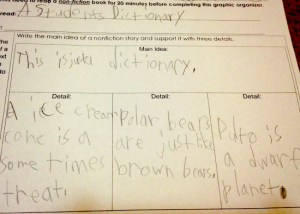 need to read a non-fiction book for 20 minutes before completing this graphic organizer.
read: A Students Dictionary
Write the main idea of a nonfiction story and support it with three details.
Main Idea:
This is just a dictionary.
Detail:
A ice cream
cone is a
some times
treat.
Detail:
polar bears
are just like
brown bears.
Detail:
Pluto is
a dwarf
planet.